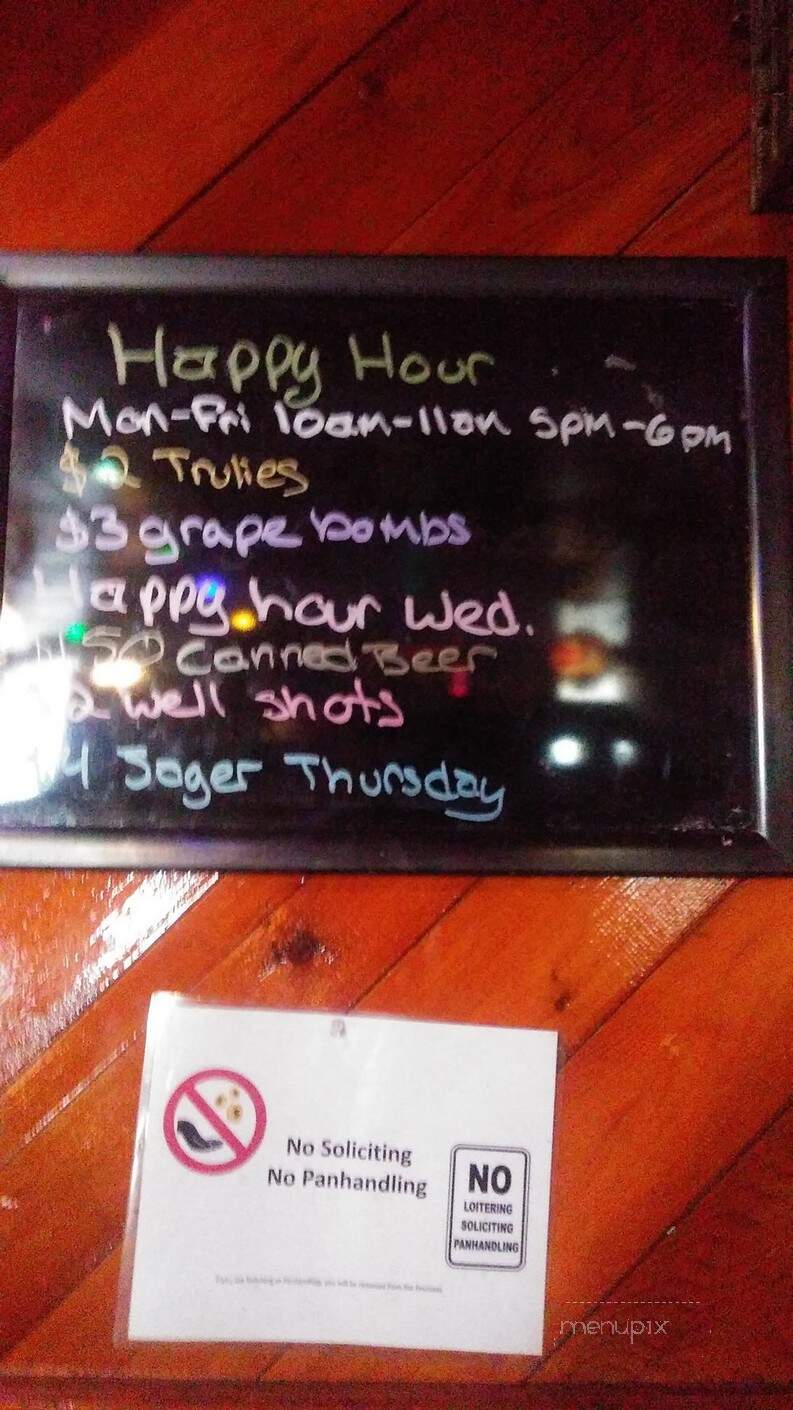 Happy Hour
Mon-Fri 10am-11am 5pm-6pm
$2 Trulies
$3 grape bombs
Happy hour Wed.
Canned Beer
$2 well shots
Jager Thursday
No Soliciting
No Panhandling
NO
LOITERING
SOLICITING
PANHANDLING
menupix